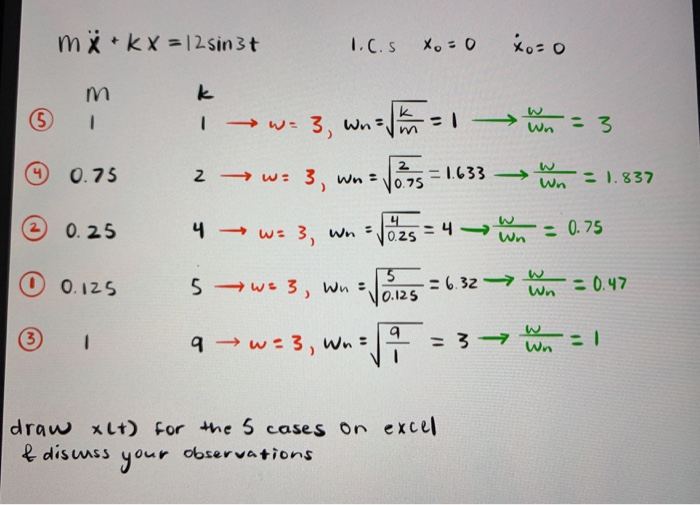 mẍ + kx = 12sin3t   I.C.s   x₀ = 0   ẋ₀ = 0
m   k
⑤ 1   1 → w = 3, wn = √(k/m) = 1 → w/wn = 3
④ 0.75   2 → w = 3, wn = √(2/0.75) = 1.633 → w/wn = 1.837
② 0.25   4 → w = 3, wn = √(4/0.25) = 4 → w/wn = 0.75
① 0.125   5 → w = 3, wn = √(5/0.125) = 6.32 → w/wn = 0.47
③ 1   9 → w = 3, wn = √(9/1) = 3 → w/wn = 1
draw x(t) for the 5 cases on excel
& discuss your observations